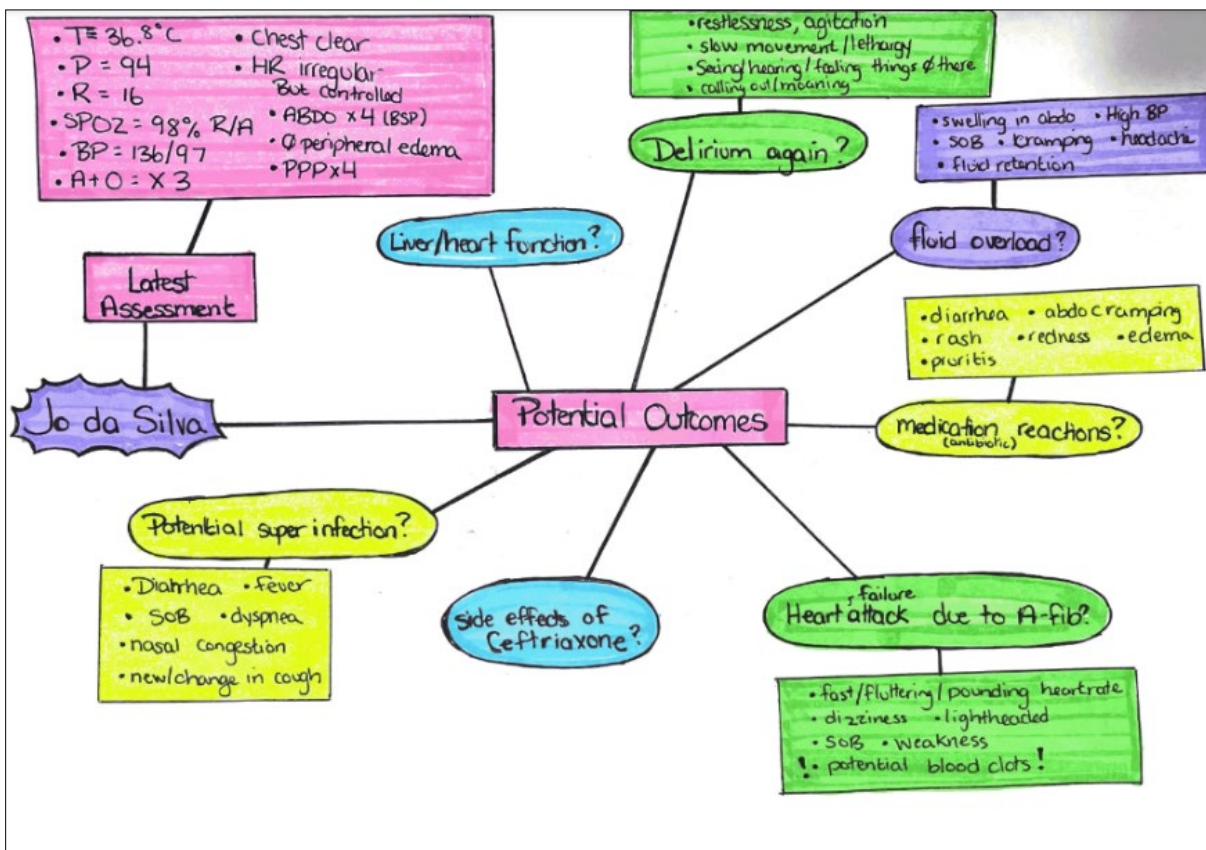 • T= 36.8°C
• P = 94
• R = 16
• SPO2 = 98% R/A
• BP = 136/97
• A+O = x 3
• Chest clear
• HR irregular
But controlled
• ABDO x4 (BSP)
• Ø peripheral edema
• PPP x4
Latest
Assessment
Jo da Silva
Potential Outcomes
Liver/heart function?
• restlessness, agitation
• slow movement/lethargy
• Seeing/hearing/feeling things Ø there
• calling out/moaning
Delirium again?
• swelling in abdo • High BP
• SOB • cramping • headache
• fluid retention
fluid overload?
• diarrhea • abdo cramping
• rash • redness • edema
• pruritis
medication reactions?
(antibiotic)
Potential super infection?
• Diarrhea • fever
• SOB • dyspnea
• nasal congestion
• new/change in cough
side effects of
Ceftriaxone?
, failure
Heart attack due to A-fib?
• fast/fluttering/pounding heartrate
• dizziness • lightheaded
• SOB • weakness
! • potential blood clots !